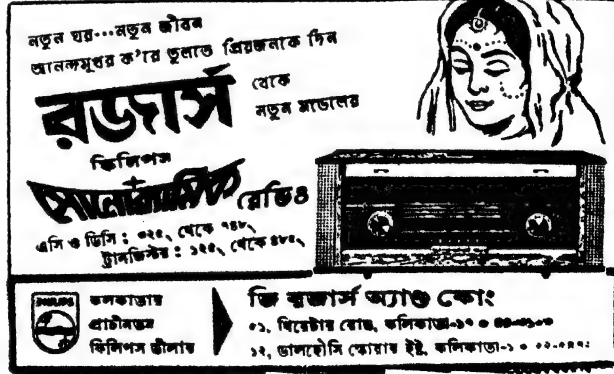 নতুন ঘর...নতুন জীবন
আনন্দমুখর ক'রে তুলতে প্রিয়জনকে দিন
রজার্স থেকে
নতুন মডেলের
ফিলিপস
নোভোসোনিক রেডিও
এসি ও ডিসি : ৩২৫৲ থেকে ৭৪৮৲
ট্রানজিস্টর : ১২৫৲ থেকে ৪৮৫৲
PHILIPS
কলকাতার
প্রাচীনতম
ফিলিপস ডীলার
জি রজার্স অ্যাণ্ড কোং
৫১, থিয়েটার রোড, কলিকাতা-১৭
১২, ডালহৌসি স্কোয়ার ইষ্ট, কলিকাতা-১